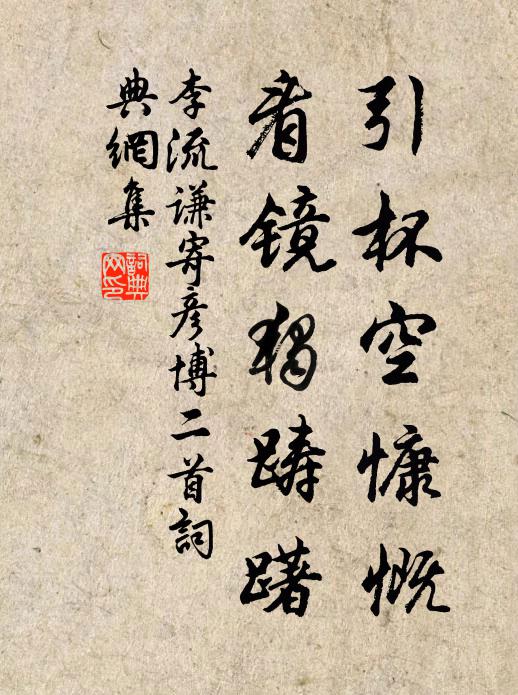 引杯空慷慨
看镜独踌躇
李流谦寄彦博二首詞
典網集
詞典网印